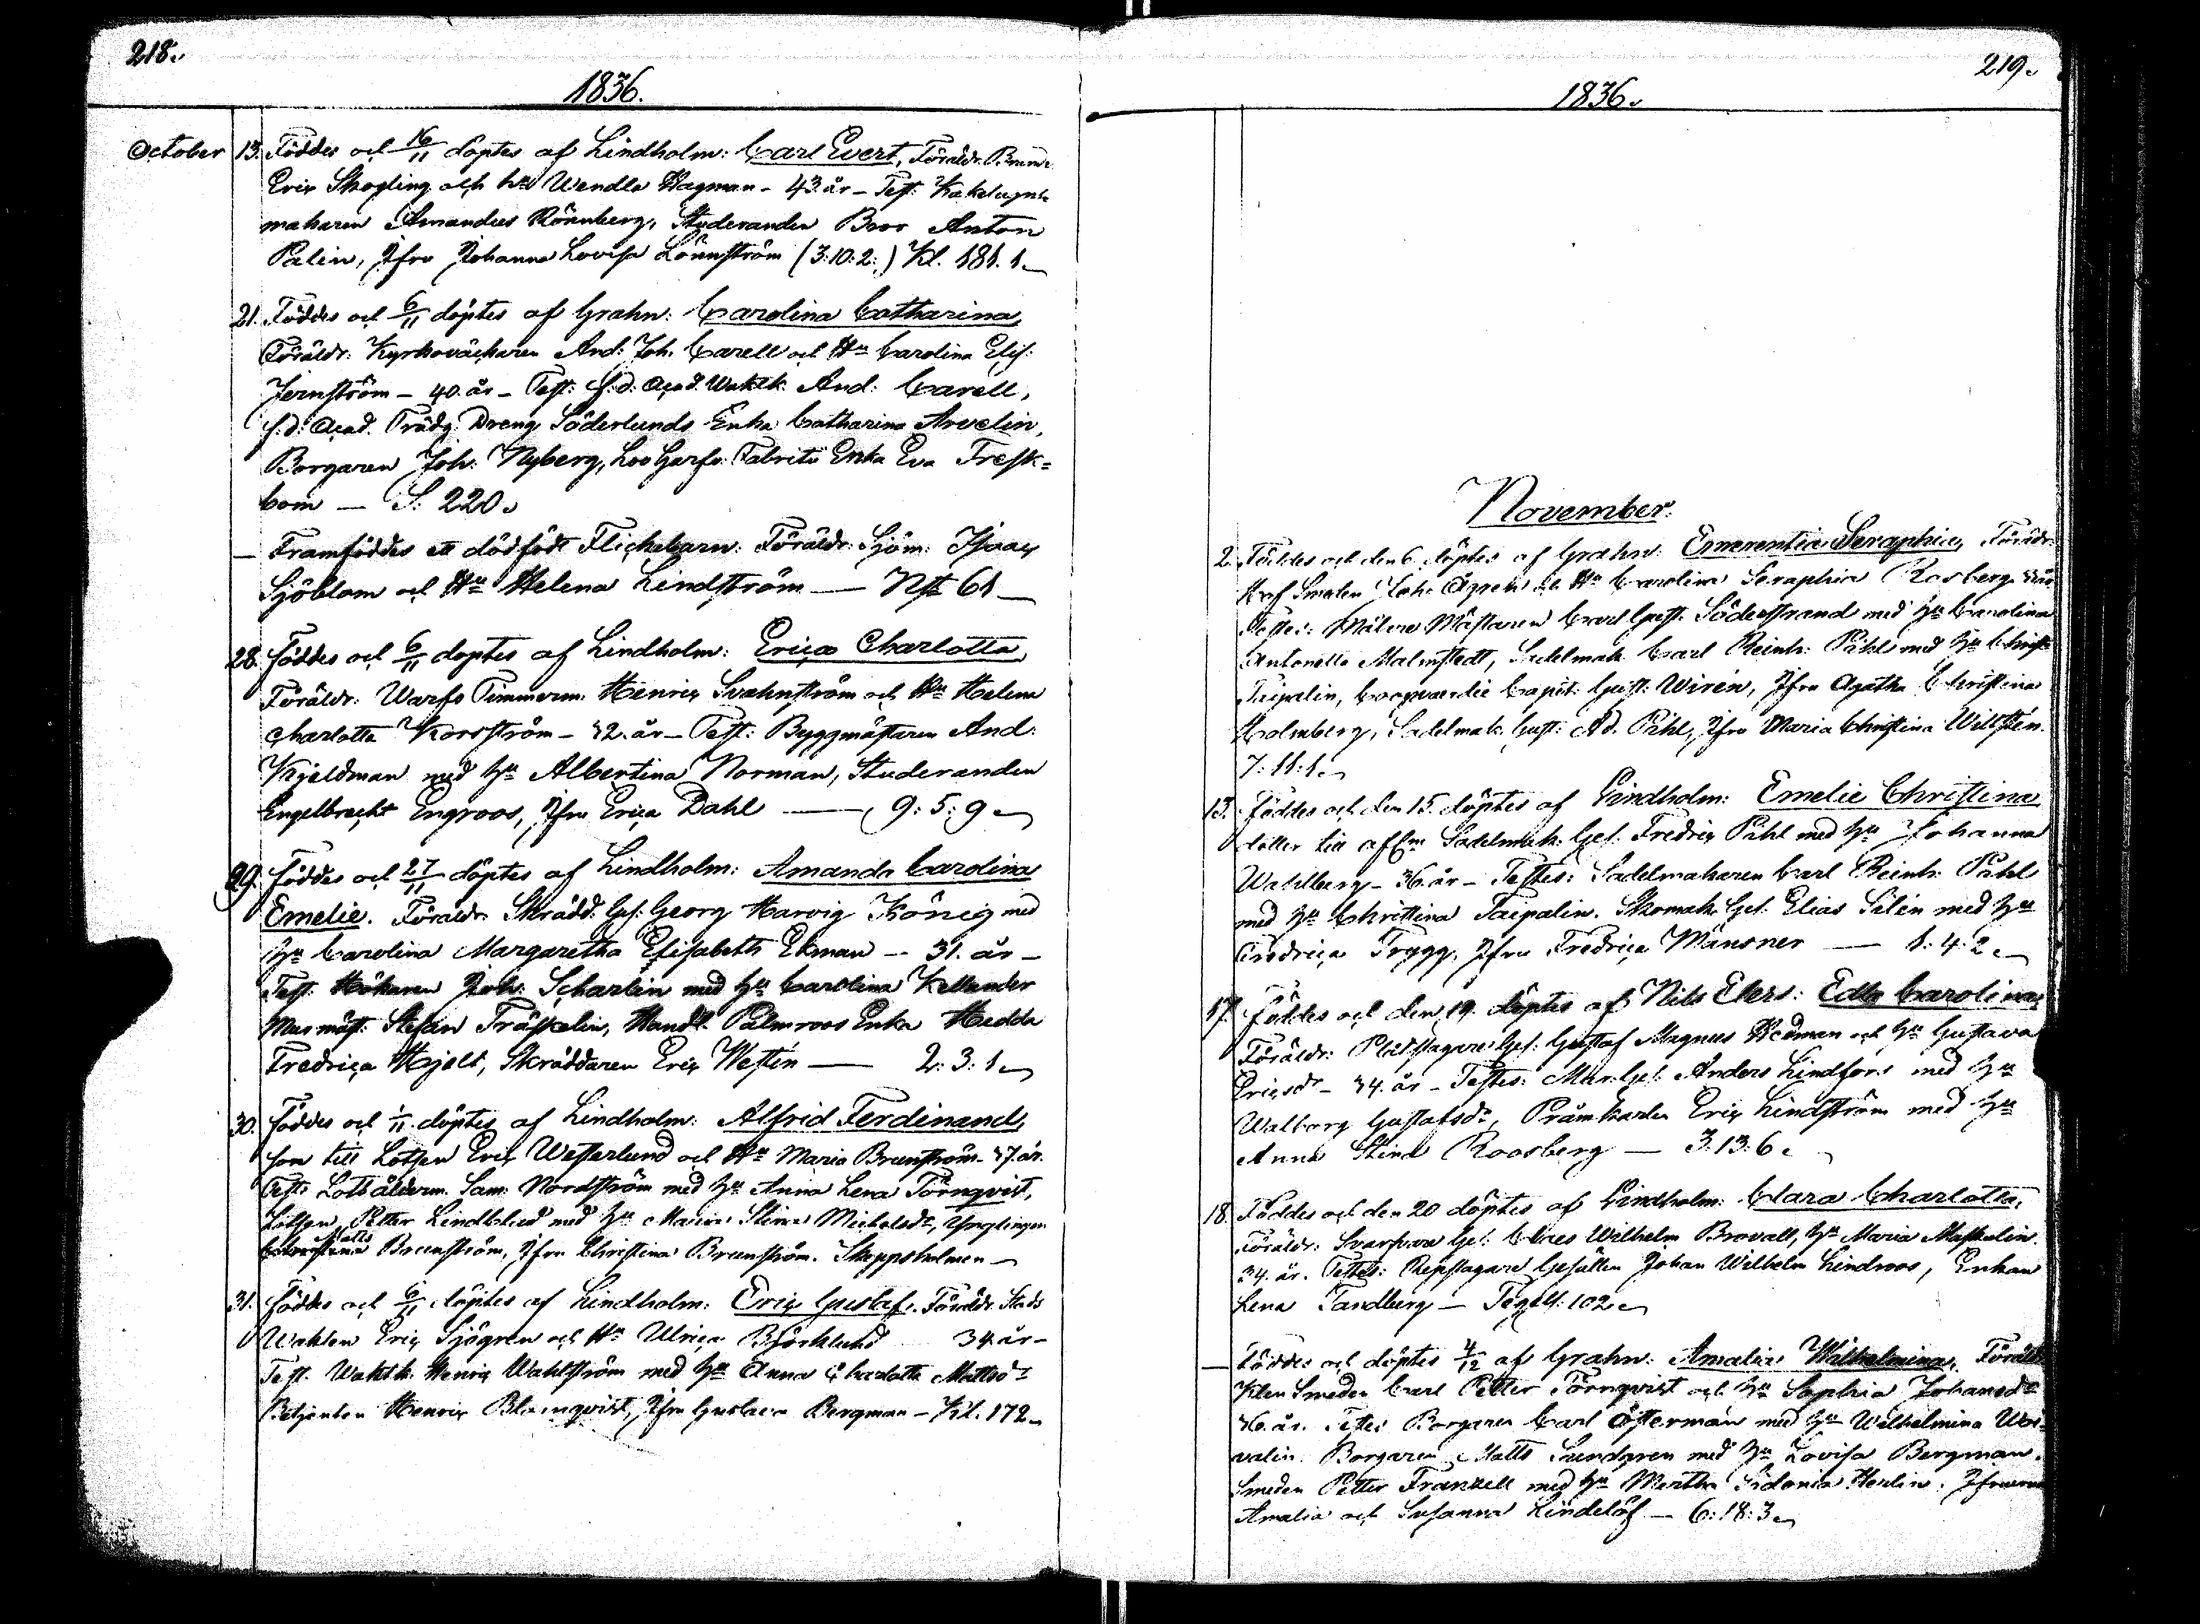 218.
1836.
October 13. Föddes och 16/11 döptes af Lindholm: Carl Evert, Föräldr.
Eric Skogling och hu Wendla Hagman - 43 år - Test: Kakelugns
makaren Amandus Rönnberg, Studeranden Bror Anton
Palin, Jfru Johanna Lovisa Lönnström (3:10:2:) Kl. 181.1.
21. Föddes och 6/11 döptes af Grahn: Carolina Catharina,
Föräldr: Kyrkoväcktaren And: Joh. Carell och Hu Carolina Elis:
Jernström - 40. år - Test: f.d. Acad. Waktk. And: Carell,
f.d. Acad. Trädg. Dreng Söderlunds Enka Catharina Arvelin,
Borgaren Joh: Nyberg, Fabrits Enka Eva Tresk=
bom - S: 220.
- Framföddes ett dödfödt Flickebarn: Föräldr: Sjöm: Isaac
Sjöblom och Hu Helena Lindström - Nft 61
28. föddes och 6/11 döptes af Lindholm: Erica Charlotta,
Föräldr: Warfs Timmerm: Henric Svahnström och Hu Helena
Charlotta Korsström - 32. år - Test: Byggmästaren And:
Kjeldman med hu Albertina Norman, Studeranden
Engelbrecht Engroos, Jfru Erica Dahl - 9:5:9
29. föddes och 27/11 döptes af Lindholm: Amanda Carolina
Emelie. Föräldr. Skrädd: Ges: Georg Harvig König med
hu Carolina Margaretha Elisabeth Ekman - 31. år -
Test: Hökaren Joh: Scharlin med hu Carolina Kellander
Murmäst: Stefan Träskelin, Handl. Palmroos Enka Hedda
Fredrica Hjelt, Skräddaren Eric Westin - 2:3:1
30. föddes och 1/11 döptes af Lindholm: Alfrid Ferdinand,
son till Lotsen Eric Westerlund och Hu Maria Brunström - 37. år.
Test: Lotsålderm. Sam: Nordström med hu Anna Lena Törnqvist,
Lotsen Petter Lindblad med hu Maria Stina Michelsdr, Ynglingen
Matts Brunström, Jfru Christina Brunström. Skeppsholmen
31. föddes och 6/11 döptes af Lindholm: Eric Gustaf. Föräldr. Stads
Wakten Eric Sjögren och Hu Ulrica Björklund 34 år -
Test. Waktk. Henric Wahlström med hu Anna Charlotta Mattsdr
Betjenten Henric Blomqvist, Jfru Gustava Bergman - Kl. 172
219.
1836.
November.
2. Föddes och den 6 döptes af Grahn: Emerentia Seraphia, Föräldr:
Smeden Joh: och Hu Carolina Seraphia Rosberg
Testes: Målare Mästaren Carl Gust. Söderstrand med hu Carolina
Antonetta Malmstedt, Sadelmak. Carl Reinh: Påhl med hu Christ:
Taipalin, Coopvaerdie Capit: Gust: Wirén, Jfru Agatha Christina
Holmberg, Sadelmak. Gust: Ad. Påhl, Jfru Maria Christina Willstén.
7:11:1.
13. föddes och den 15. döptes af Lindholm: Emelie Christina
dotter till Sadelmak: Ges. Fredric Påhl med hu Johanna
Wahlberg - 36. år - Testes: Sadelmakaren Carl Reinh: Påhl
med hu Christina Taipalin. Skomak: Ges: Elias Silén med hu
Fredrica Trygg, Jfru Fredrica Mänsner - 1:4:2.
17. föddes och den 19. döptes af Nils Elers: Edla Carolina,
Föräldr: Plåtslagare Ges: Gustaf Magnus Hedman och hu Gustava
Ericsdr - 34. år - Testes: Mur: Ges: Anders Lindfors med hu
Walborg Gustafsdr, Pråmkarlen Eric Lindström med hu
Anna Stina Roosberg - 3:13:6.
18. Föddes och den 20 döptes af Lindholm: Clara Charlotta,
Föräldr: Svarfvare Ges: Claes Wilhelm Brovall, hu Maria Maskelin.
34. år. Testes: Repslagare Gesällen Johan Wilhelm Lindroos, Enkan
Lena Tandberg - 102.
- Föddes och döptes 4/12 af Grahn: Amalia Wilhelmina, Föräldr:
Klen Smeden Carl Petter Törnqvist och hu Sophia Johansdr
36. år. Testes Borgaren Carl Österman med hu Wilhelmina Wa-
valin. Borgaren Matts Sundgren med hu Lovisa Bergman.
Smeden Petter Franzell med hu Martha Sidonia Herlin. Jfruerna
Amalia och Susanna Lindelöf - 6:18:3.